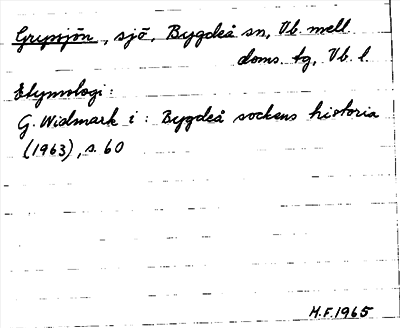 Gripsjön, sjö, Bygdeå sn, Vb. mell.
doms. tg, Vb. l.
Etymologi:
G. Widmark i: Bygdeå sockens historia
(1963), s. 60
H.F. 1965